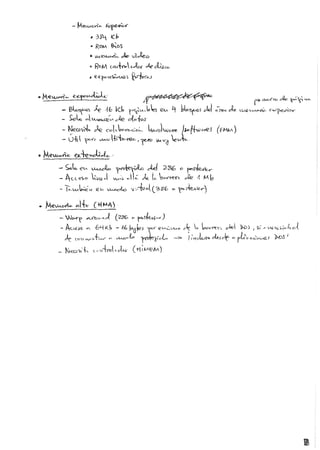 - Memoria superior
• 384 Kb
• ROM Bios
• memoria de video
• ROM controlador de disco
• expansiones
• Memoria expandida:
- Bloques de 16 Kb paginables en 4 bloques del área de memoria superior
- Solo almacén de datos
- Necesita de colaboración hardware / software (EMM)
- Útil para multitarea, pero muy lenta
• Memoria extendida
- Solo en modo protegido del 286 o posterior
- Acceso lineal más allá de la barrera de 1 Mb
- También en modo virtual (386 o posterior)
• Memoria alta (HMA)
- Wrap around (286 o posterior)
- Acceso a 64 Kb - 16 bytes por encima de la barrera del DOS, sin necesidad
de conmutar a modo protegido → incluso desde DOS!
- Necesita controlador (HIMEM)